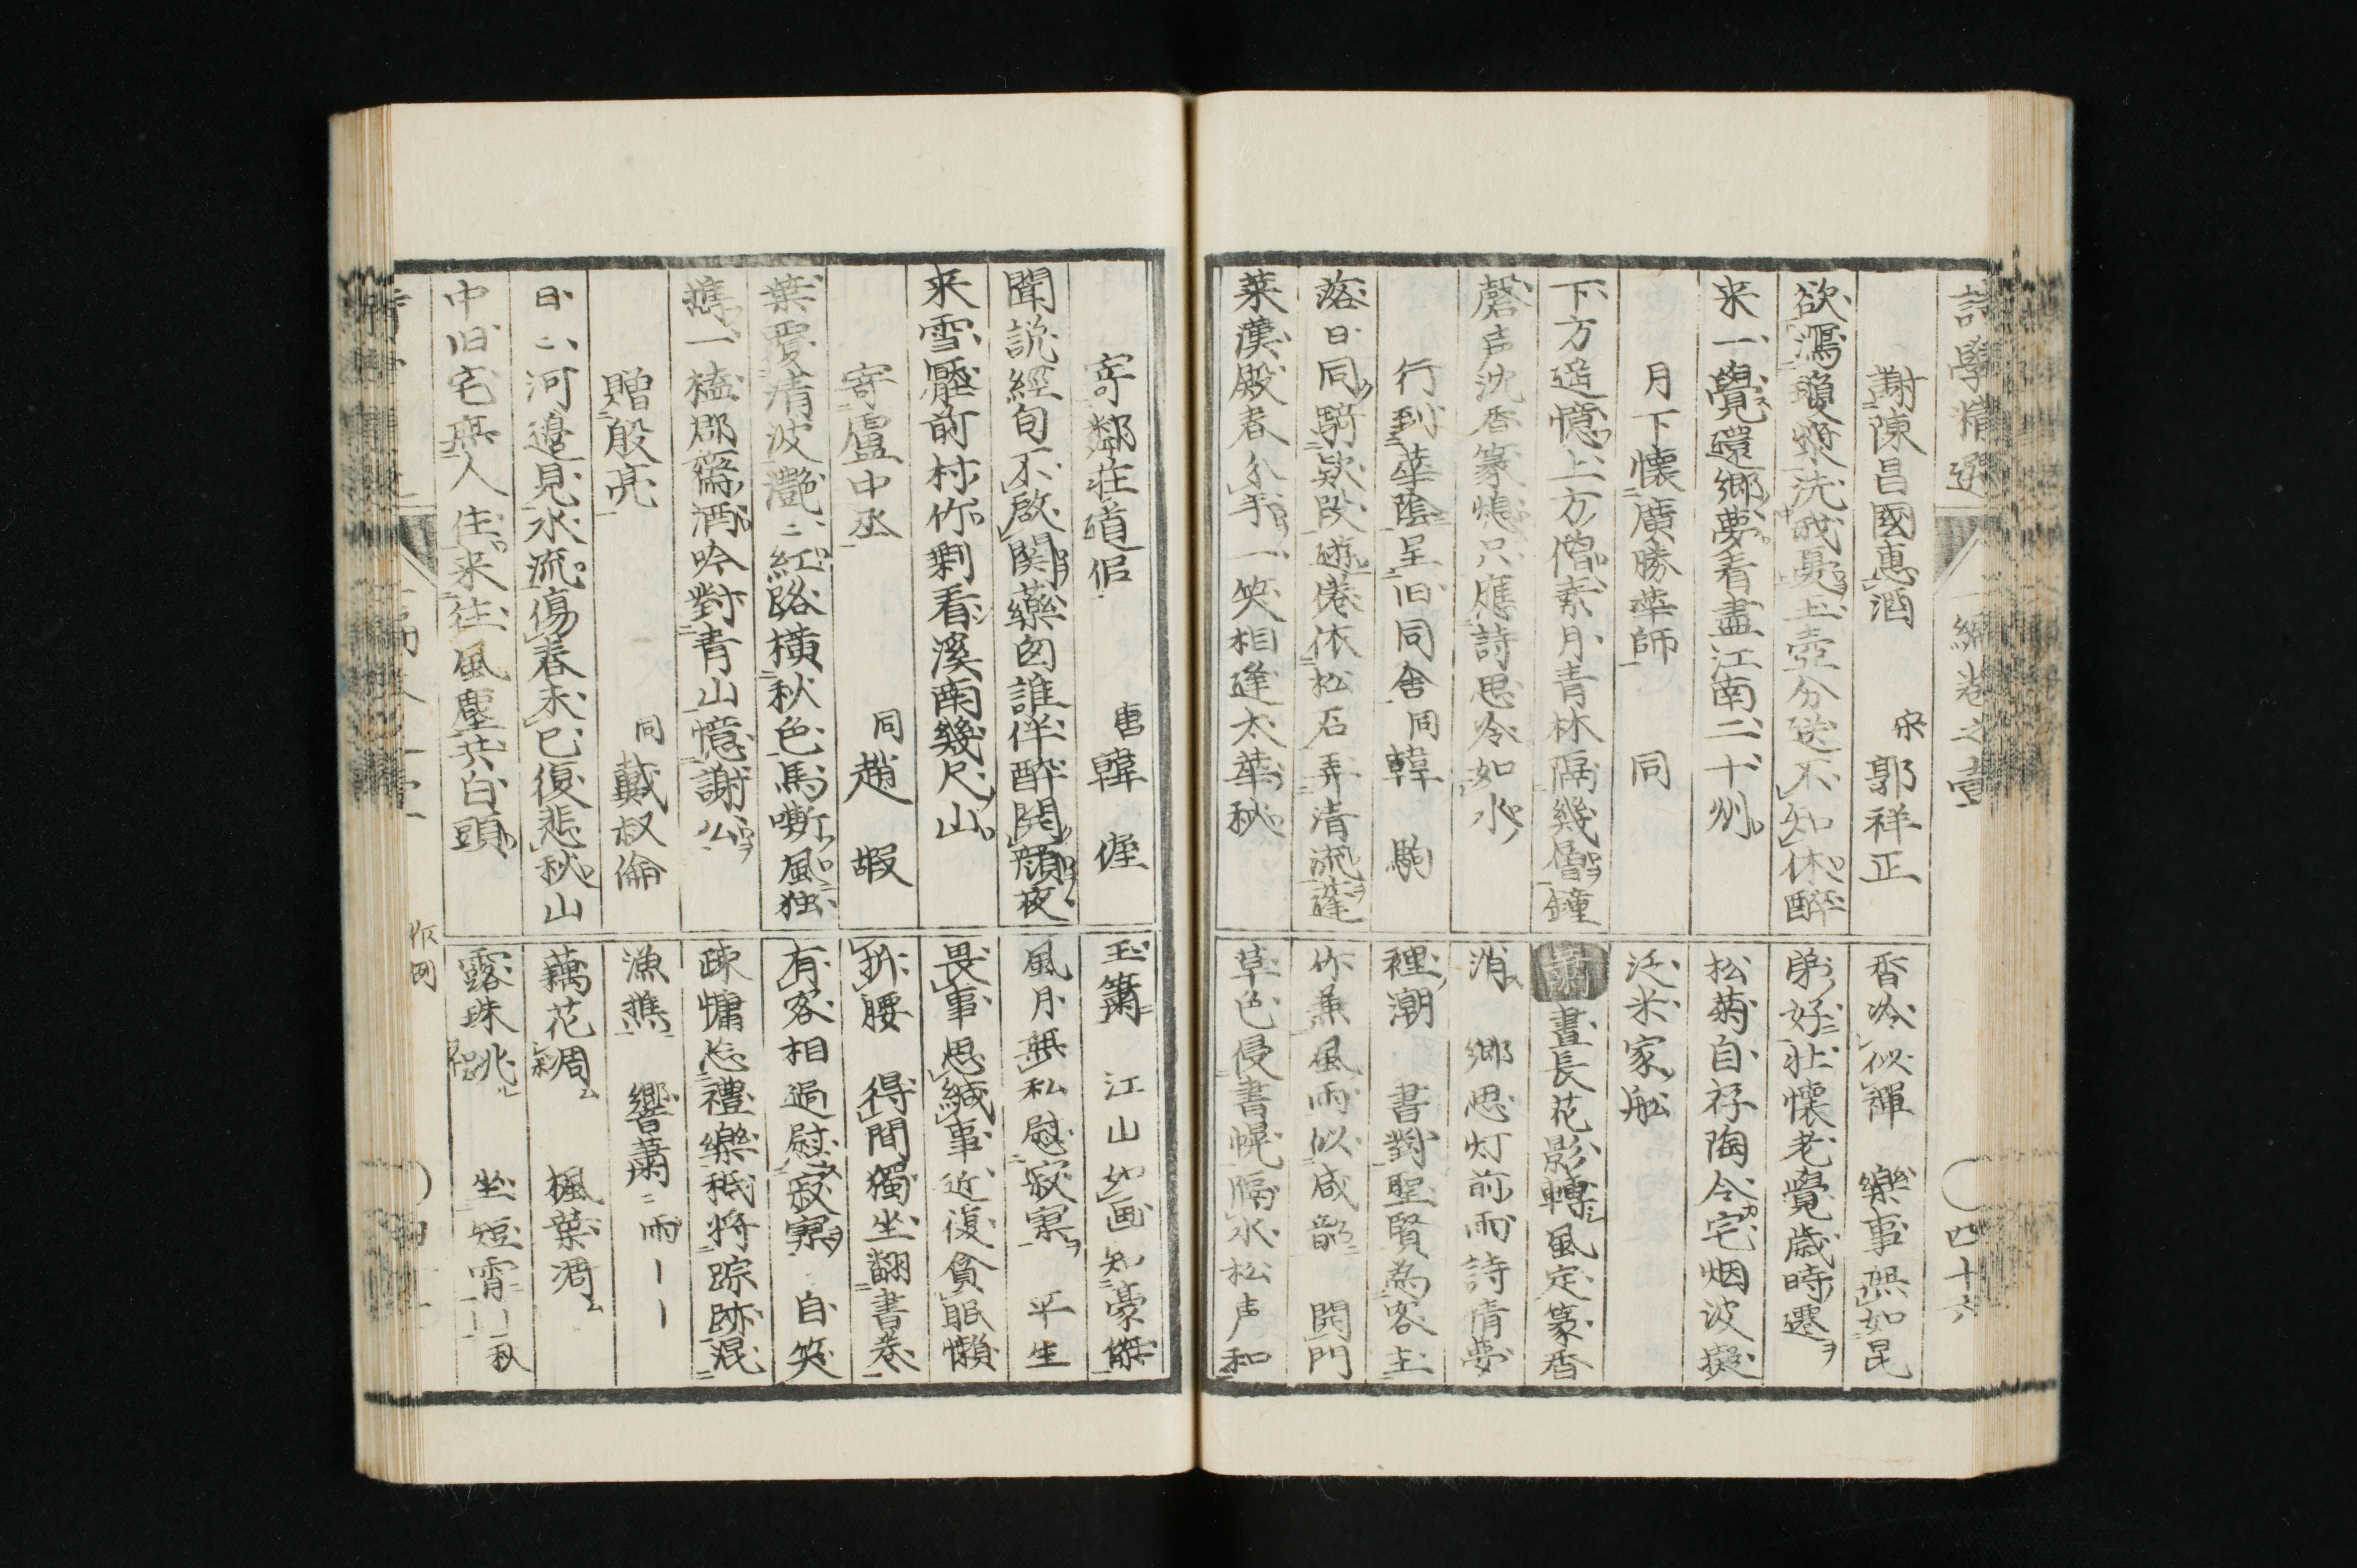 詩學精選 一編卷之壹 四十六
謝陳昌國惠酒 宋 郭祥正
欲瀉瓊漿洗我憂玉壺分送不知休醉
来一覺還郷夢看盡江南二十州
月下懐廣勝華師 同
下方遥憶上方僧素月青林隔幾層鐘
磬声沈香篆熄只應詩思冷如水
行到華陰呈旧同舎 同 韓 駒
落日同騎欵段遊倦依松石弄清流蓬
莱漢殿春分手一笑相逢太華秋
香冷似禪 樂事無如昆
弟好壮懐老覺歳時遷
松菊自存陶令宅烟波擬
泛米家舩
蕭 晝長花影轉風定篆香
消 郷思灯前雨詩情夢
裡潮 書對聖賢為客主
作兼風雨似咸韶 閉門
草色侵書幌隔水松声和
寄鄰荘道侶 唐 韓 偓
聞説經旬不啟関藥囱誰伴醉開顔夜
来雪壓前村竹剰看溪南幾尺山
寄盧中丞 同 趙 嘏
葉覆清波灔〻紅路横秋色馬嘶風独
攜一榼郡齋酒吟對青山憶謝公
贈殷亮 同 戴叔倫
日〻河邉見水流傷春未已復悲秋山
中旧宅無人住来往風塵共白頭
玉簫 江山如画知豪傑
風月無私慰寂寞 平生
畏事思緘事近復貪眠懶
折腰 得間獨坐翻書巻
有客相過慰寂寞 自笑
疎慵忘禮樂秖将踪跡混
漁樵 響蕭〻雨
藕花凋 楓葉凋
露珠跳 坐短宵 秋